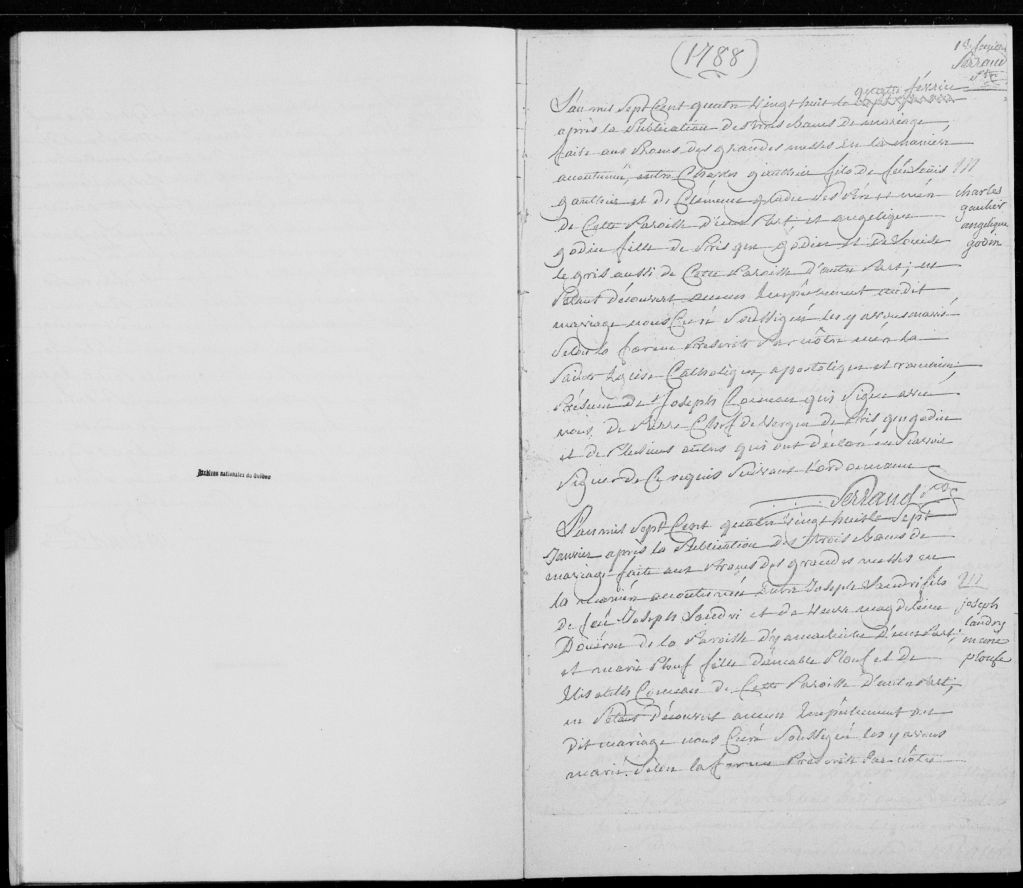 Archives nationales du Québec
(1788)
1er
Serrand
ptre
quatre février
L'an mil Sept Cent quatre Vingt huit le
après la Publication des trois bancs de mariage,
faite aux Prones des grandes messes en la manière
accoutumée, entre Charles gauthier fils de feu Louis
gauthier et de Clémence Ses Père et mère
de Cette Paroisse d'une Part, et angelique
godin fille de godin et de Louise
le gris aussi de Cette Paroisse D'autre Part; ne
S'etant découvert aucun Empêchement audit
mariage nous Curé Soussigné les y avons marié
Selon la forme Prescrite Par nôtre mère la
Sainte Eglise Catholique, apostolique et romaine,
Présence de Joseph Comeau qui Signe avec
nous, de Pierre de godin
et de Plusieurs autres qui ont déclaré ne Savoir
Signer de Ce requis Suivant L'ordonnance
Serrand ptre
m
charles
gautier
angelique
godin
L'an mil Sept Cent quatre Vingt huit le Sept
Janvier après la Publication des trois bancs de
mariage faite aux Prones des grandes messes en
la manière accoutumée Entre Joseph Landri fils
de feu Joseph Landri et de magdeleine
de la Paroisse d'yamachiche D'une Part,
et marie Plouf fille d'aimable Plouf et de
Elisabeth Comeau de Cette Paroisse D'autre Part,
ne S'etant Découvert aucun Empêchement au
Dit mariage nous Curé Soussigné les y avons
marié Selon la forme Prescrite Par nôtre
m
joseph
landry
marie
ploufe